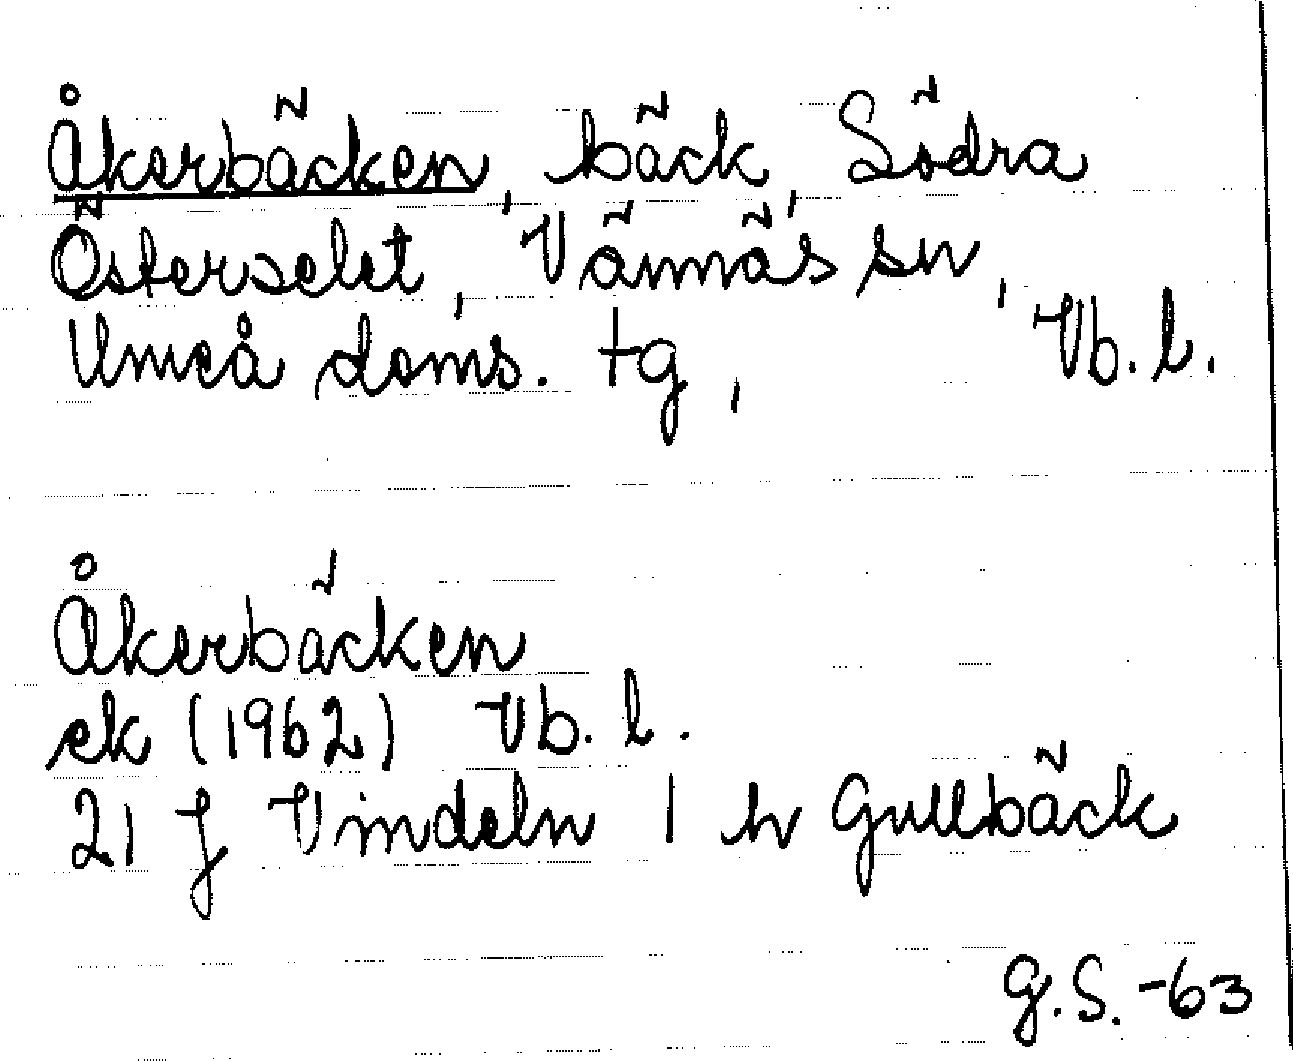 Åkerbäcken, bäck, Södra
Österselet, Vännäs sn,
Umeå doms. tg, Vb. l.
Åkerbäcken
ek (1962) Vb. l.
21 J Vindeln 1 h Gullbäck
G.S. -63